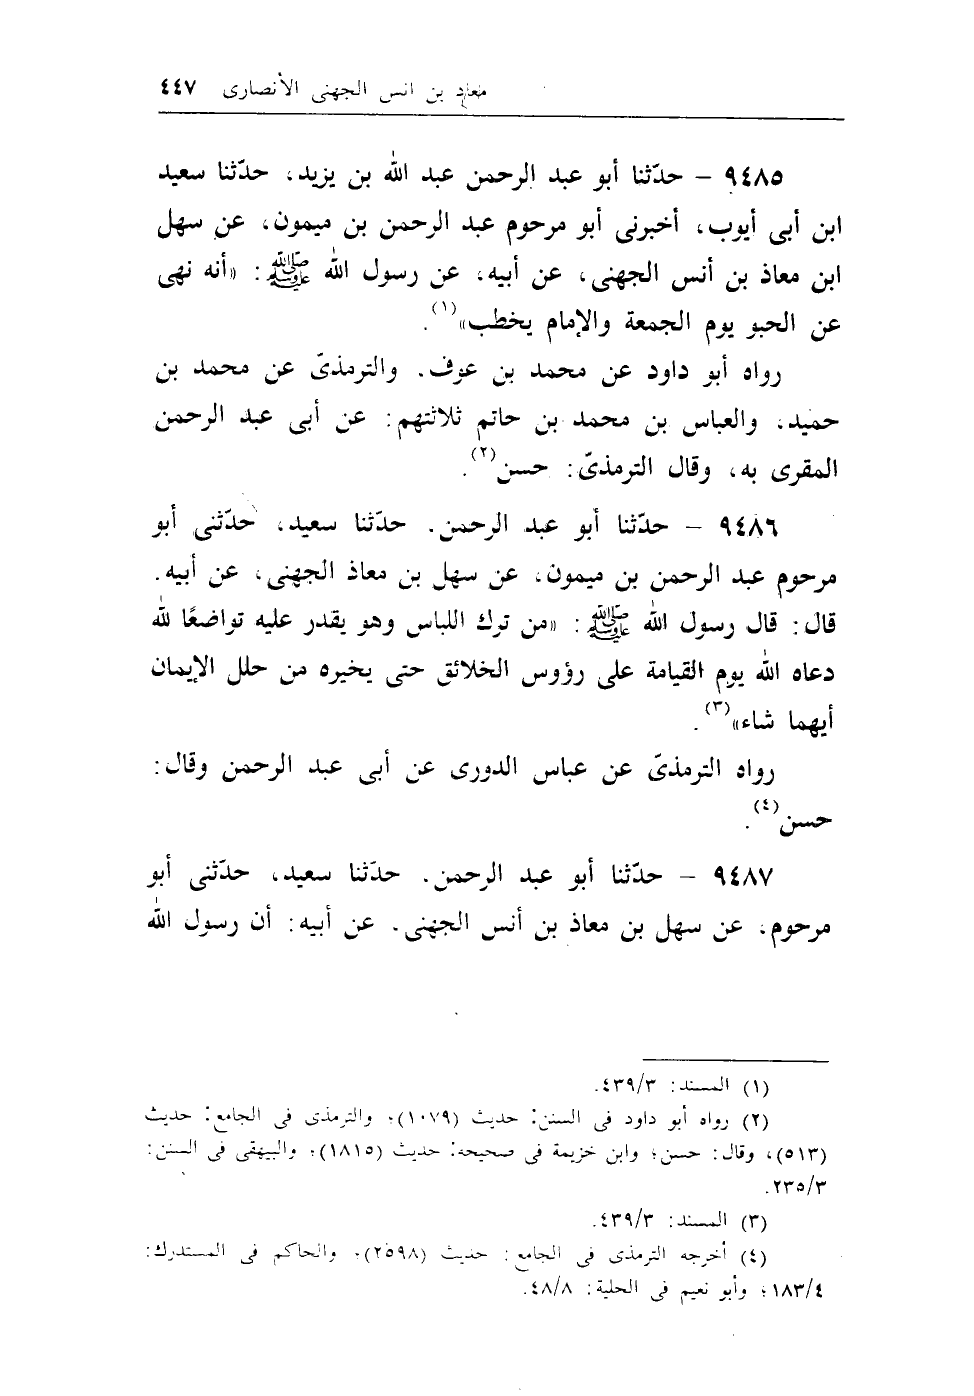 معاذ بن أنس الجهنى الأنصارى ٤٤٧
٩٤٨٥ – حدّثنا أبو عبد الرحمن عبد الله بن يزيد، حدّثنا سعيد
ابن أبى أيوب، أخبرنى أبو مرحوم عبد الرحمن بن ميمون، عن سهل
ابن معاذ بن أنس الجهنى، عن أبيه، عن رسول الله ﷺ: «أنه نهى
عن الحبو يوم الجمعة والإمام يخطب»(١).
رواه أبو داود عن محمد بن عوف. والترمذىّ عن محمد بن
حميد، والعباس بن محمد بن حاتم ثلاثتهم: عن أبى عبد الرحمن
المقرى به، وقال الترمذىّ: حسن(٢).
٩٤٨٦ – حدّثنا أبو عبد الرحمن. حدّثنا سعيد، حدّثنى أبو
مرحوم عبد الرحمن بن ميمون، عن سهل بن معاذ الجهنى، عن أبيه.
قال: قال رسول الله ﷺ: «من ترك اللباس وهو يقدر عليه تواضعًا لله
دعاه الله يوم القيامة على رؤوس الخلائق حتى يخيره من حلل الإيمان
أيهما شاء»(٣).
رواه الترمذىّ عن عباس الدورى عن أبى عبد الرحمن وقال:
حسن(٤).
٩٤٨٧ – حدّثنا أبو عبد الرحمن. حدّثنا سعيد، حدّثنى أبو
مرحوم، عن سهل بن معاذ بن أنس الجهنى. عن أبيه: أن رسول الله
(١) المسند: ٤٣٩/٣.
(٢) رواه أبو داود فى السنن: حديث (١٠٧٩)؛ والترمذى فى الجامع: حديث
(٥١٣)، وقال: حسن؛ وابن خزيمة فى صحيحه: حديث (١٨١٥)؛ والبيهقى فى السنن:
٢٣٥/٣.
(٣) المسند: ٤٣٩/٣.
(٤) أخرجه الترمذى فى الجامع: حديث (٢٥٩٨)؛ والحاكم فى المستدرك:
١٨٣/٤؛ وأبو نعيم فى الحلية: ٤٨/٨.